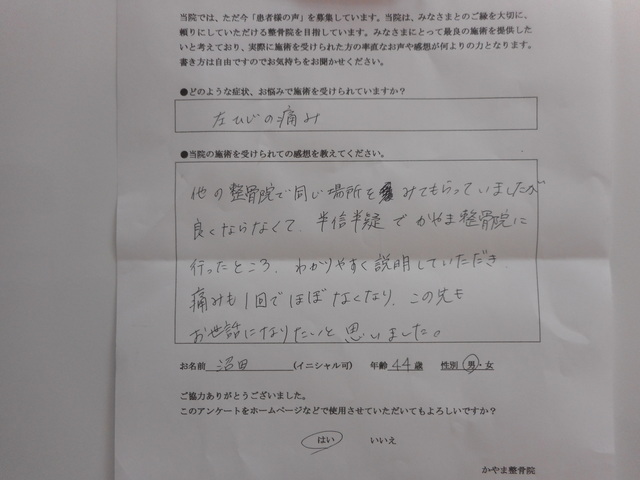 当院では、ただ今「患者様の声」を募集しています。当院は、みなさまとのご縁を大切に、
頼りにしていただける整骨院を目指しています。みなさまにとって最良の施術を提供した
いと考えており、実際に施術を受けられた方の率直なお声や感想が何よりの力となります。
書き方は自由ですのでお気持ちをお聞かせください。
●どのような症状、お悩みで施術を受けられていますか？
左ひじの痛み
●当院の施術を受けられての感想を教えてください。
他の整骨院で同じ場所をみてもらっていましたが
良くならなくて、半信半疑でかやま整骨院に
行ったところ、わかりやすく説明していただき、
痛みも1回でほぼなくなり、この先も
お世話になりたいと思いました。
お名前 沼田 (イニシャル可) 年齢 44歳 性別 男・女
ご協力ありがとうございました。
このアンケートをホームページなどで使用させていただいてもよろしいですか？
はい いいえ
かやま整骨院